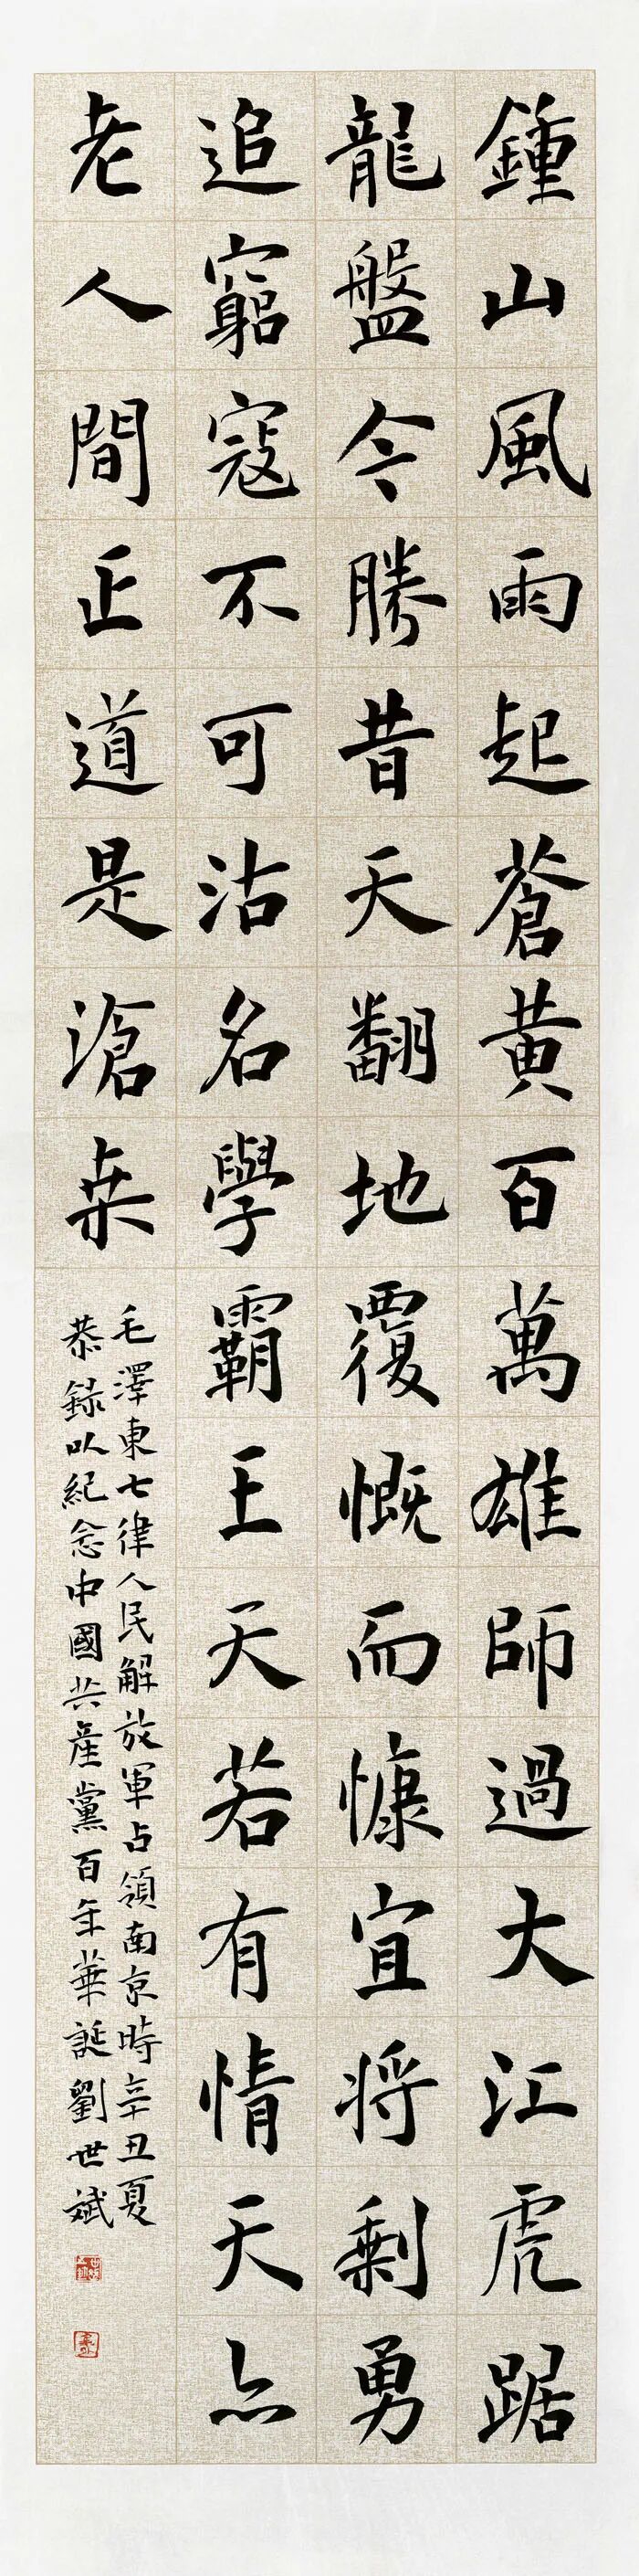 鍾山風雨起蒼黃百萬雄師過大江虎踞
龍盤今勝昔天翻地覆慨而慷宜将剩勇
追窮寇不可沽名學霸王天若有情天亦
老人間正道是滄桒
毛澤東七律人民解放軍占領南京時辛丑夏
恭録以紀念中國共產黨百年華誕劉世斌